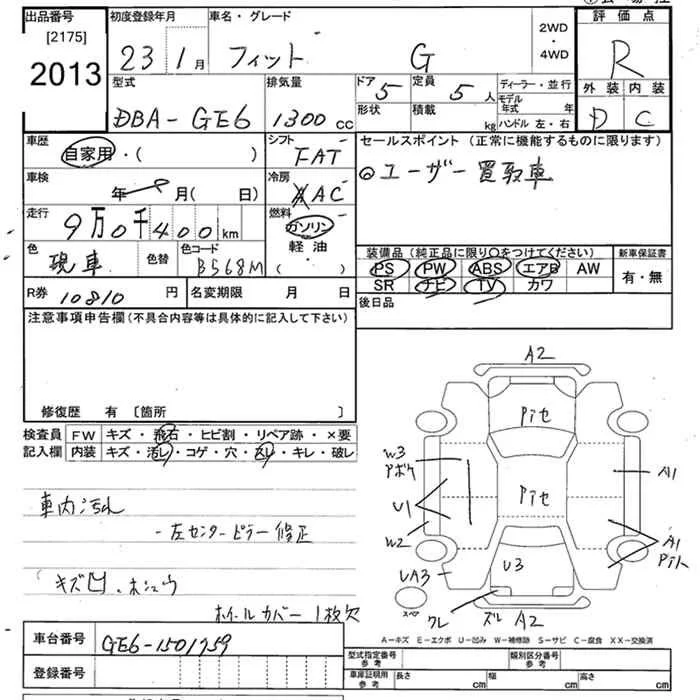 出品番号 初度登録年月 車名・グレード 2WD・4WD 評価点
[2175]
2013 23 1月 フィット G R
型式 排気量 ドア 5 定員 5人 ディーラー・並行 外装 内装
DBA-GE6 1300cc 形状 積載 kg モデル年式 年 D C
ハンドル 左・右
車歴 シフト セールスポイント (正常に機能するものに限ります)
自家用・( ) FAT ◎ユーザー買取車
車検 年 月( 日) 冷房 AAC
走行 9万0千400km 燃料 ガソリン
色 現車 色替 色コード B568M 軽油 ( )
装備品(純正品に限り○をつけてください) 新車保証書
PS PW ABS エアB AW 有・無
SR ナビ TV カワ
R券 10810円 名変期限 月 日 後日品
注意事項申告欄(不具合内容等は具体的に記入して下さい)
修復歴 有 〔箇所 〕
検査員 FW キズ・飛石・ヒビ割・リペア跡・×要
記入欄 内装 キズ・汚レ・コゲ・穴・スレ・キレ・破レ
車内汚れ
-左センターピラー修正
キズ凹.ホシュウ
ホイールカバー1枚欠
A2
Pイセ
W3
Pボケ
A1
U1
Pイセ
W2
A1
Pハト
UA3
U3
スペア
クレ ズレ A2
A-キズ E-エクボ U-凹み W-補修跡 S-サビ C-腐食 XX-交換済
車台番号 GE6-1501759
型式指定番号 参考 類別区分番号 参考
登録番号
車庫証明用 参考 長さ cm 幅 cm 高さ cm